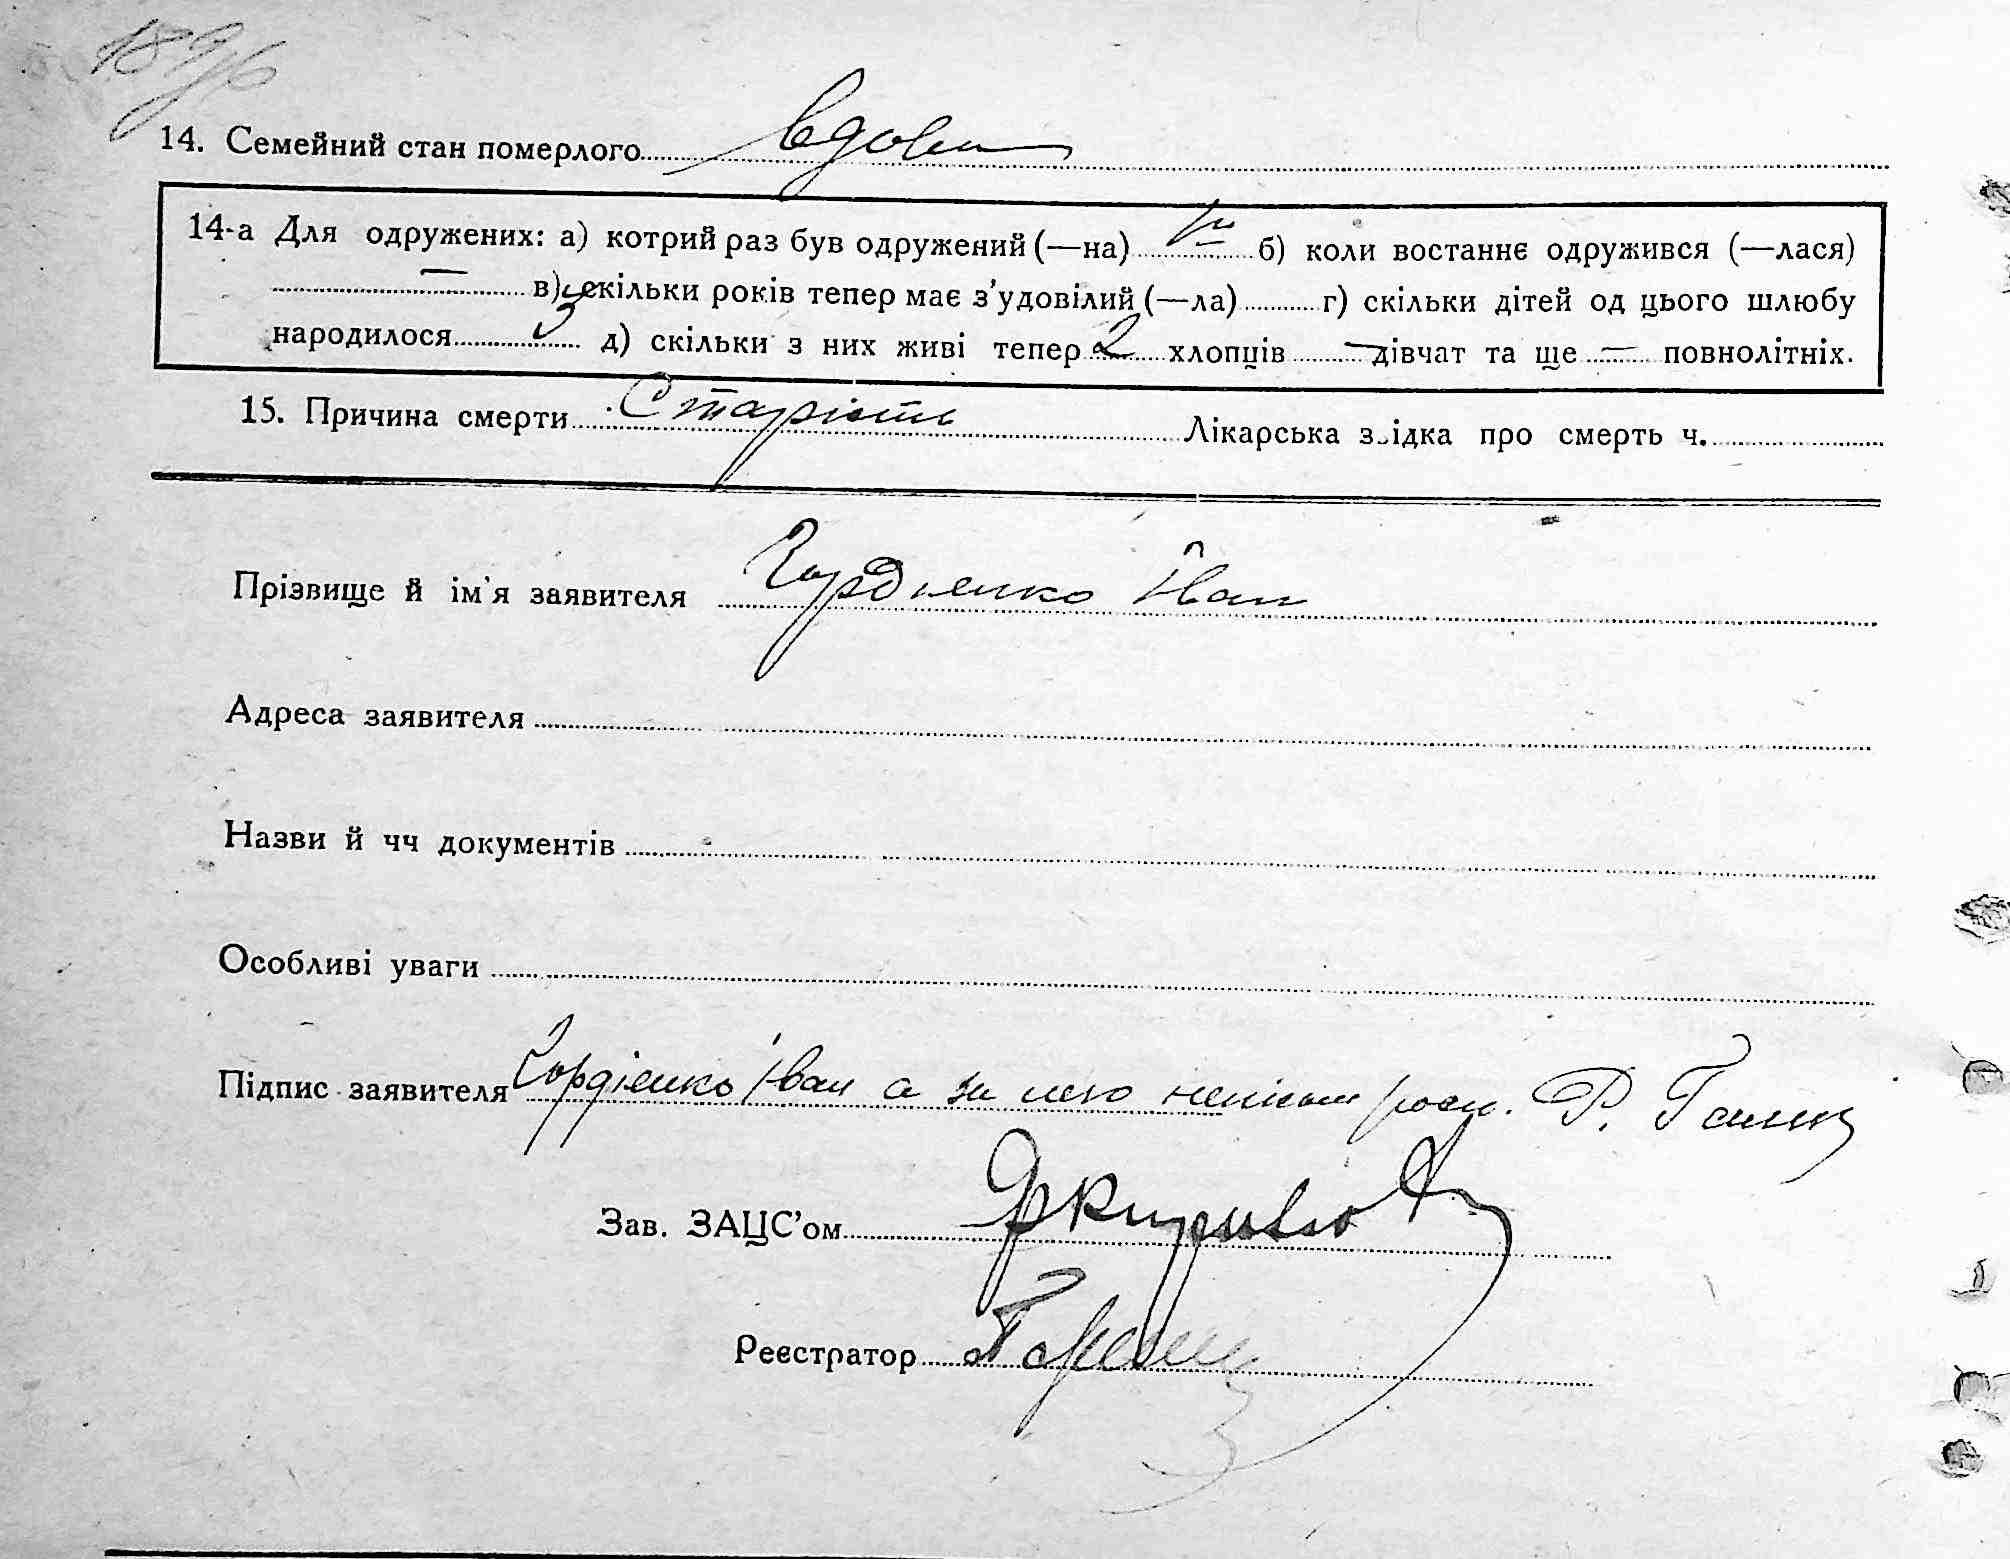 189/6
14. Семейний стан померлого вдова
14-а Для одружених: а) котрий раз був одружений (—на) б) коли востаннє одружився (—лася)
— в) скільки років тепер має з'удовілий (—ла) г) скільки дітей од цього шлюбу
народилося 5 д) скільки з них живі тепер 2 хлопців — дівчат та ще — повнолітніх.
15. Причина смерти Старість Лікарська звідка про смерть ч.
Прізвище й ім'я заявителя Гордієнко Іван
Адреса заявителя
Назви й чч документів
Особливі уваги
Підпис заявителя Гордієнко Іван а за него неписьм росп. Р.
Зав. ЗАЦС'ом
Реєстратор